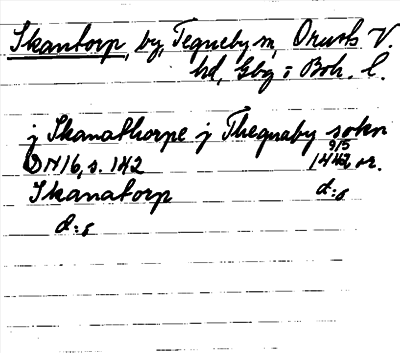 Skantorp, by, Tegneby sn, Orusts V.
hd, Gbg o Boh. l.
j Skanathorpe j Thegnaby sokn
DN 16, s. 142 9/5 1442 or.
Skanatorp d:o
d:o